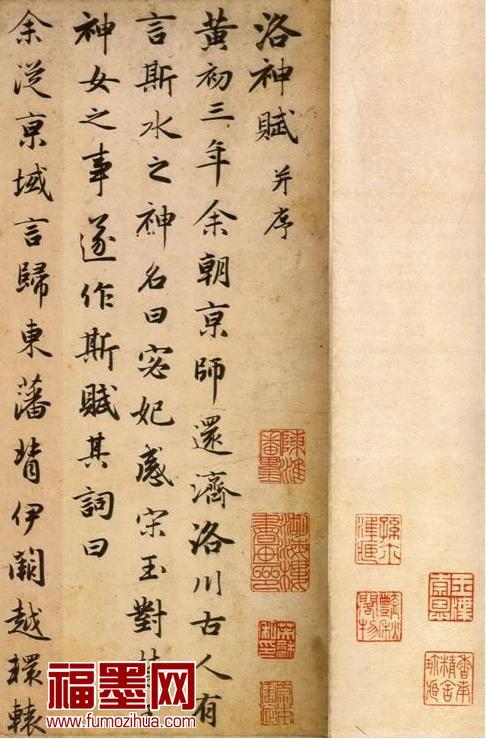 洛神賦 并序
黃初三年余朝京師還濟洛川古人有
言斯水之神名曰宓妃感宋玉對
神女之事遂作斯賦其詞曰
余從京域言歸東藩背伊闕越轘轅
福墨网
www.fumozihua.com